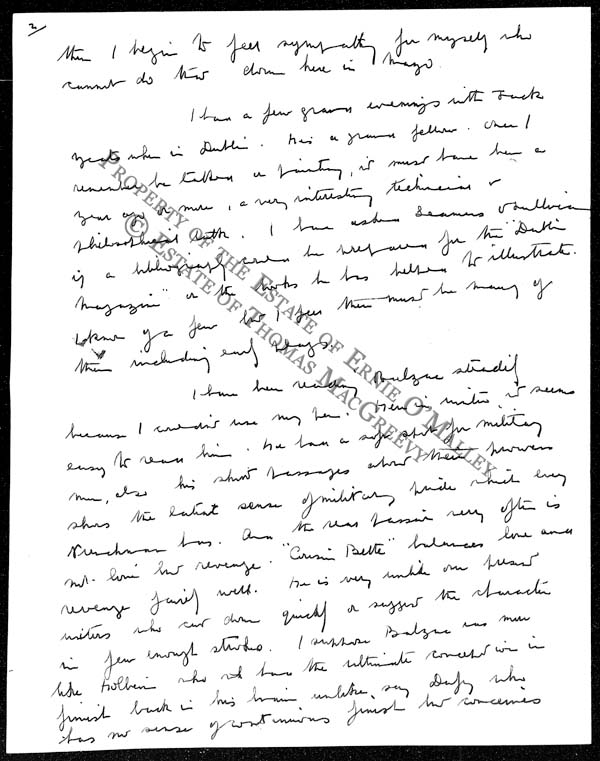 2/
then I begin to feel sympathy for myself who
cannot do that down here in Mayo.
I had a few grand evenings with Jack
Yeats when in Dublin. He is a grand fellow. Once I
remember he talked on painting, it must have been a
year ago or more, a very interesting technical &
philosophical talk. I have asked Seamus O'Sullivan
if a bibliography could be prepared for the "Dublin
Magazine" on the books he has helped to illustrate.
I know of a few but I feel there must be many of
them including early plays.
I have been reading Balzac steadily
because I couldn't use my pen. He is, it seems
easy to read him. He has a soft spot for military
men, also his short passages about their prowess
shows the latent sense of military pride which every
Frenchman has. And the real passion very often is
not love but revenge. "Cousin Bette" balances love and
revenge fairly well. He is very unlike our present
writers who cut down quickly or suggest the character
in few enough strokes. I suppose Balzac was more
like Holbein who had the ultimate conception in
finish back in his brain unlike, say Dufy who
has no sense of continuous finish but concerns
PROPERTY OF THE ESTATE OF ERNIE O'MALLEY
© ESTATE OF THOMAS MACGREEVY